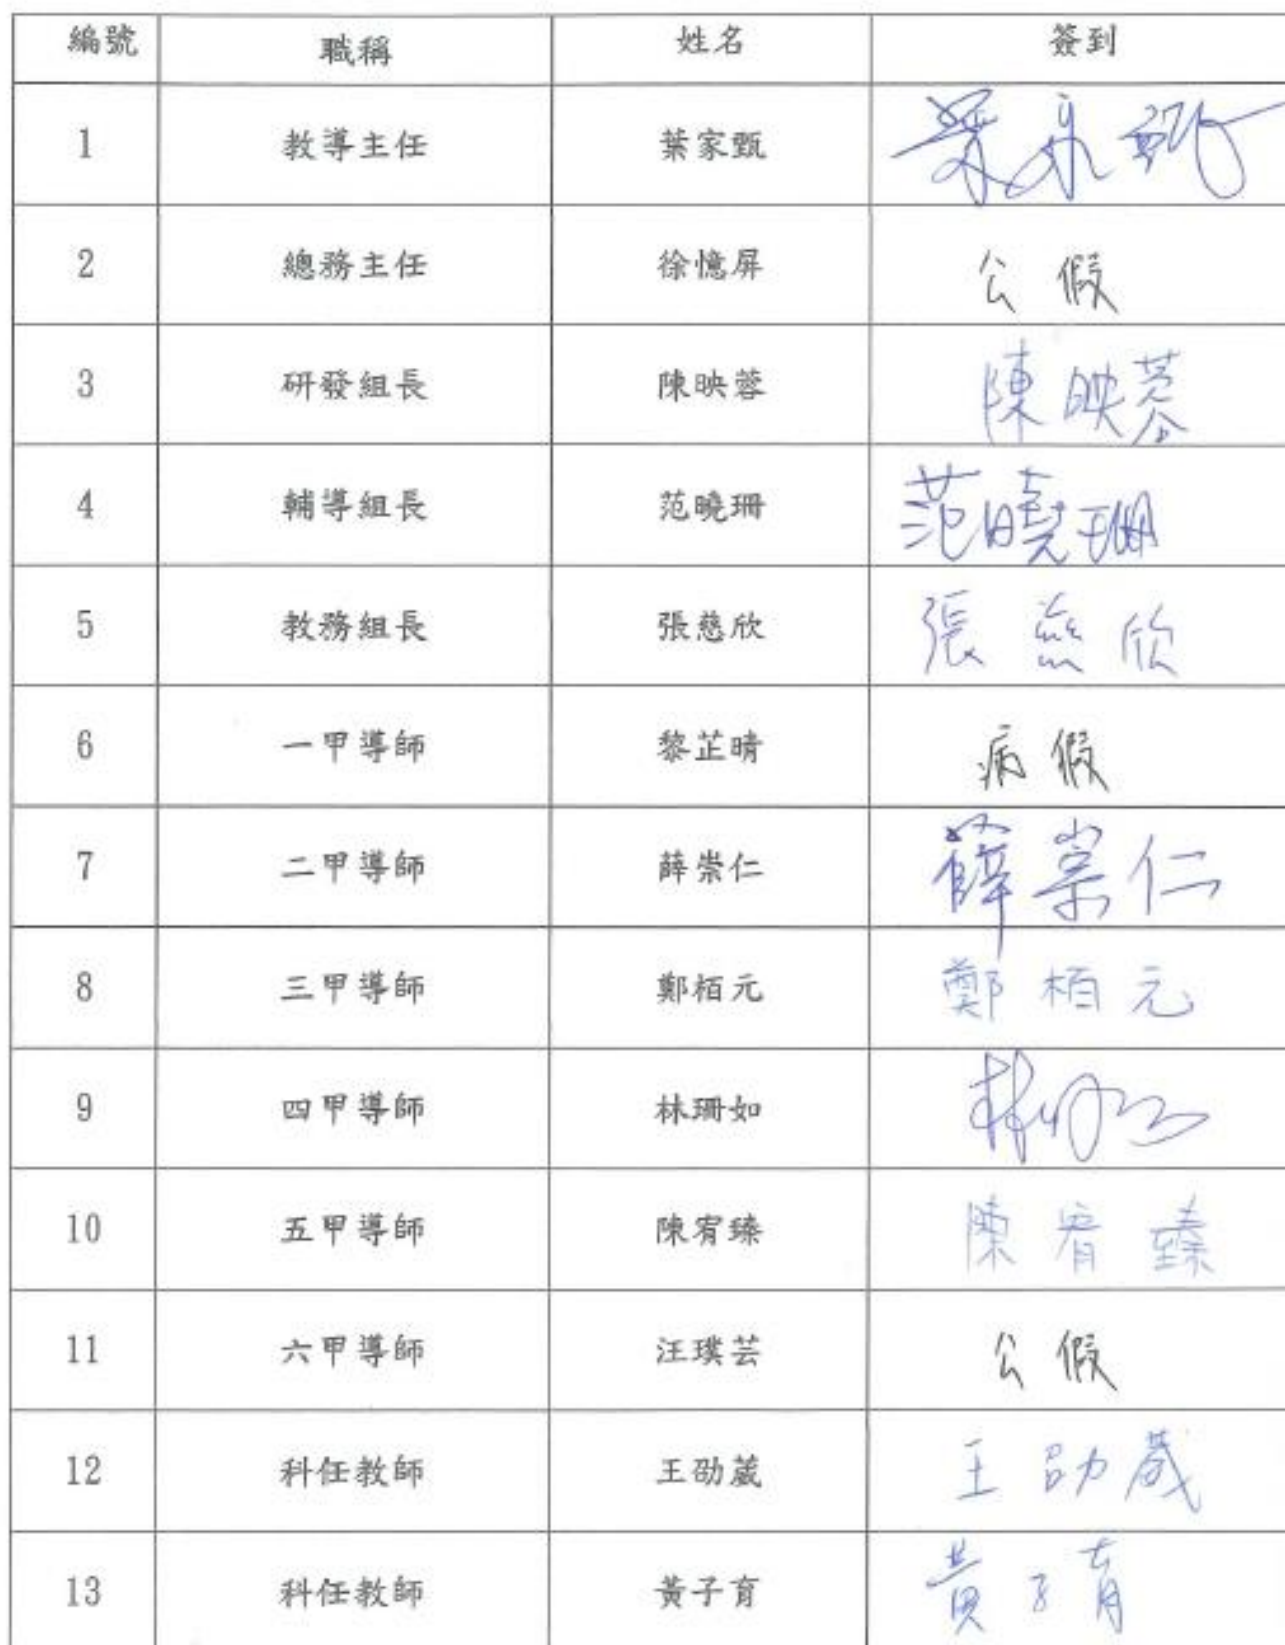 編號 職稱 姓名 簽到
1 教導主任 葉家甄 葉家甄
2 總務主任 徐憶屏 公假
3 研發組長 陳映蓉 陳映蓉
4 輔導組長 范曉珊 范曉珊
5 教務組長 張慈欣 張慈欣
6 一甲導師 黎芷晴 病假
7 二甲導師 薛崇仁 薛崇仁
8 三甲導師 鄭栢元 鄭栢元
9 四甲導師 林珊如 林珊如
10 五甲導師 陳宥臻 陳宥臻
11 六甲導師 汪璞芸 公假
12 科任教師 王劭葳 王劭葳
13 科任教師 黃子育 黃子育